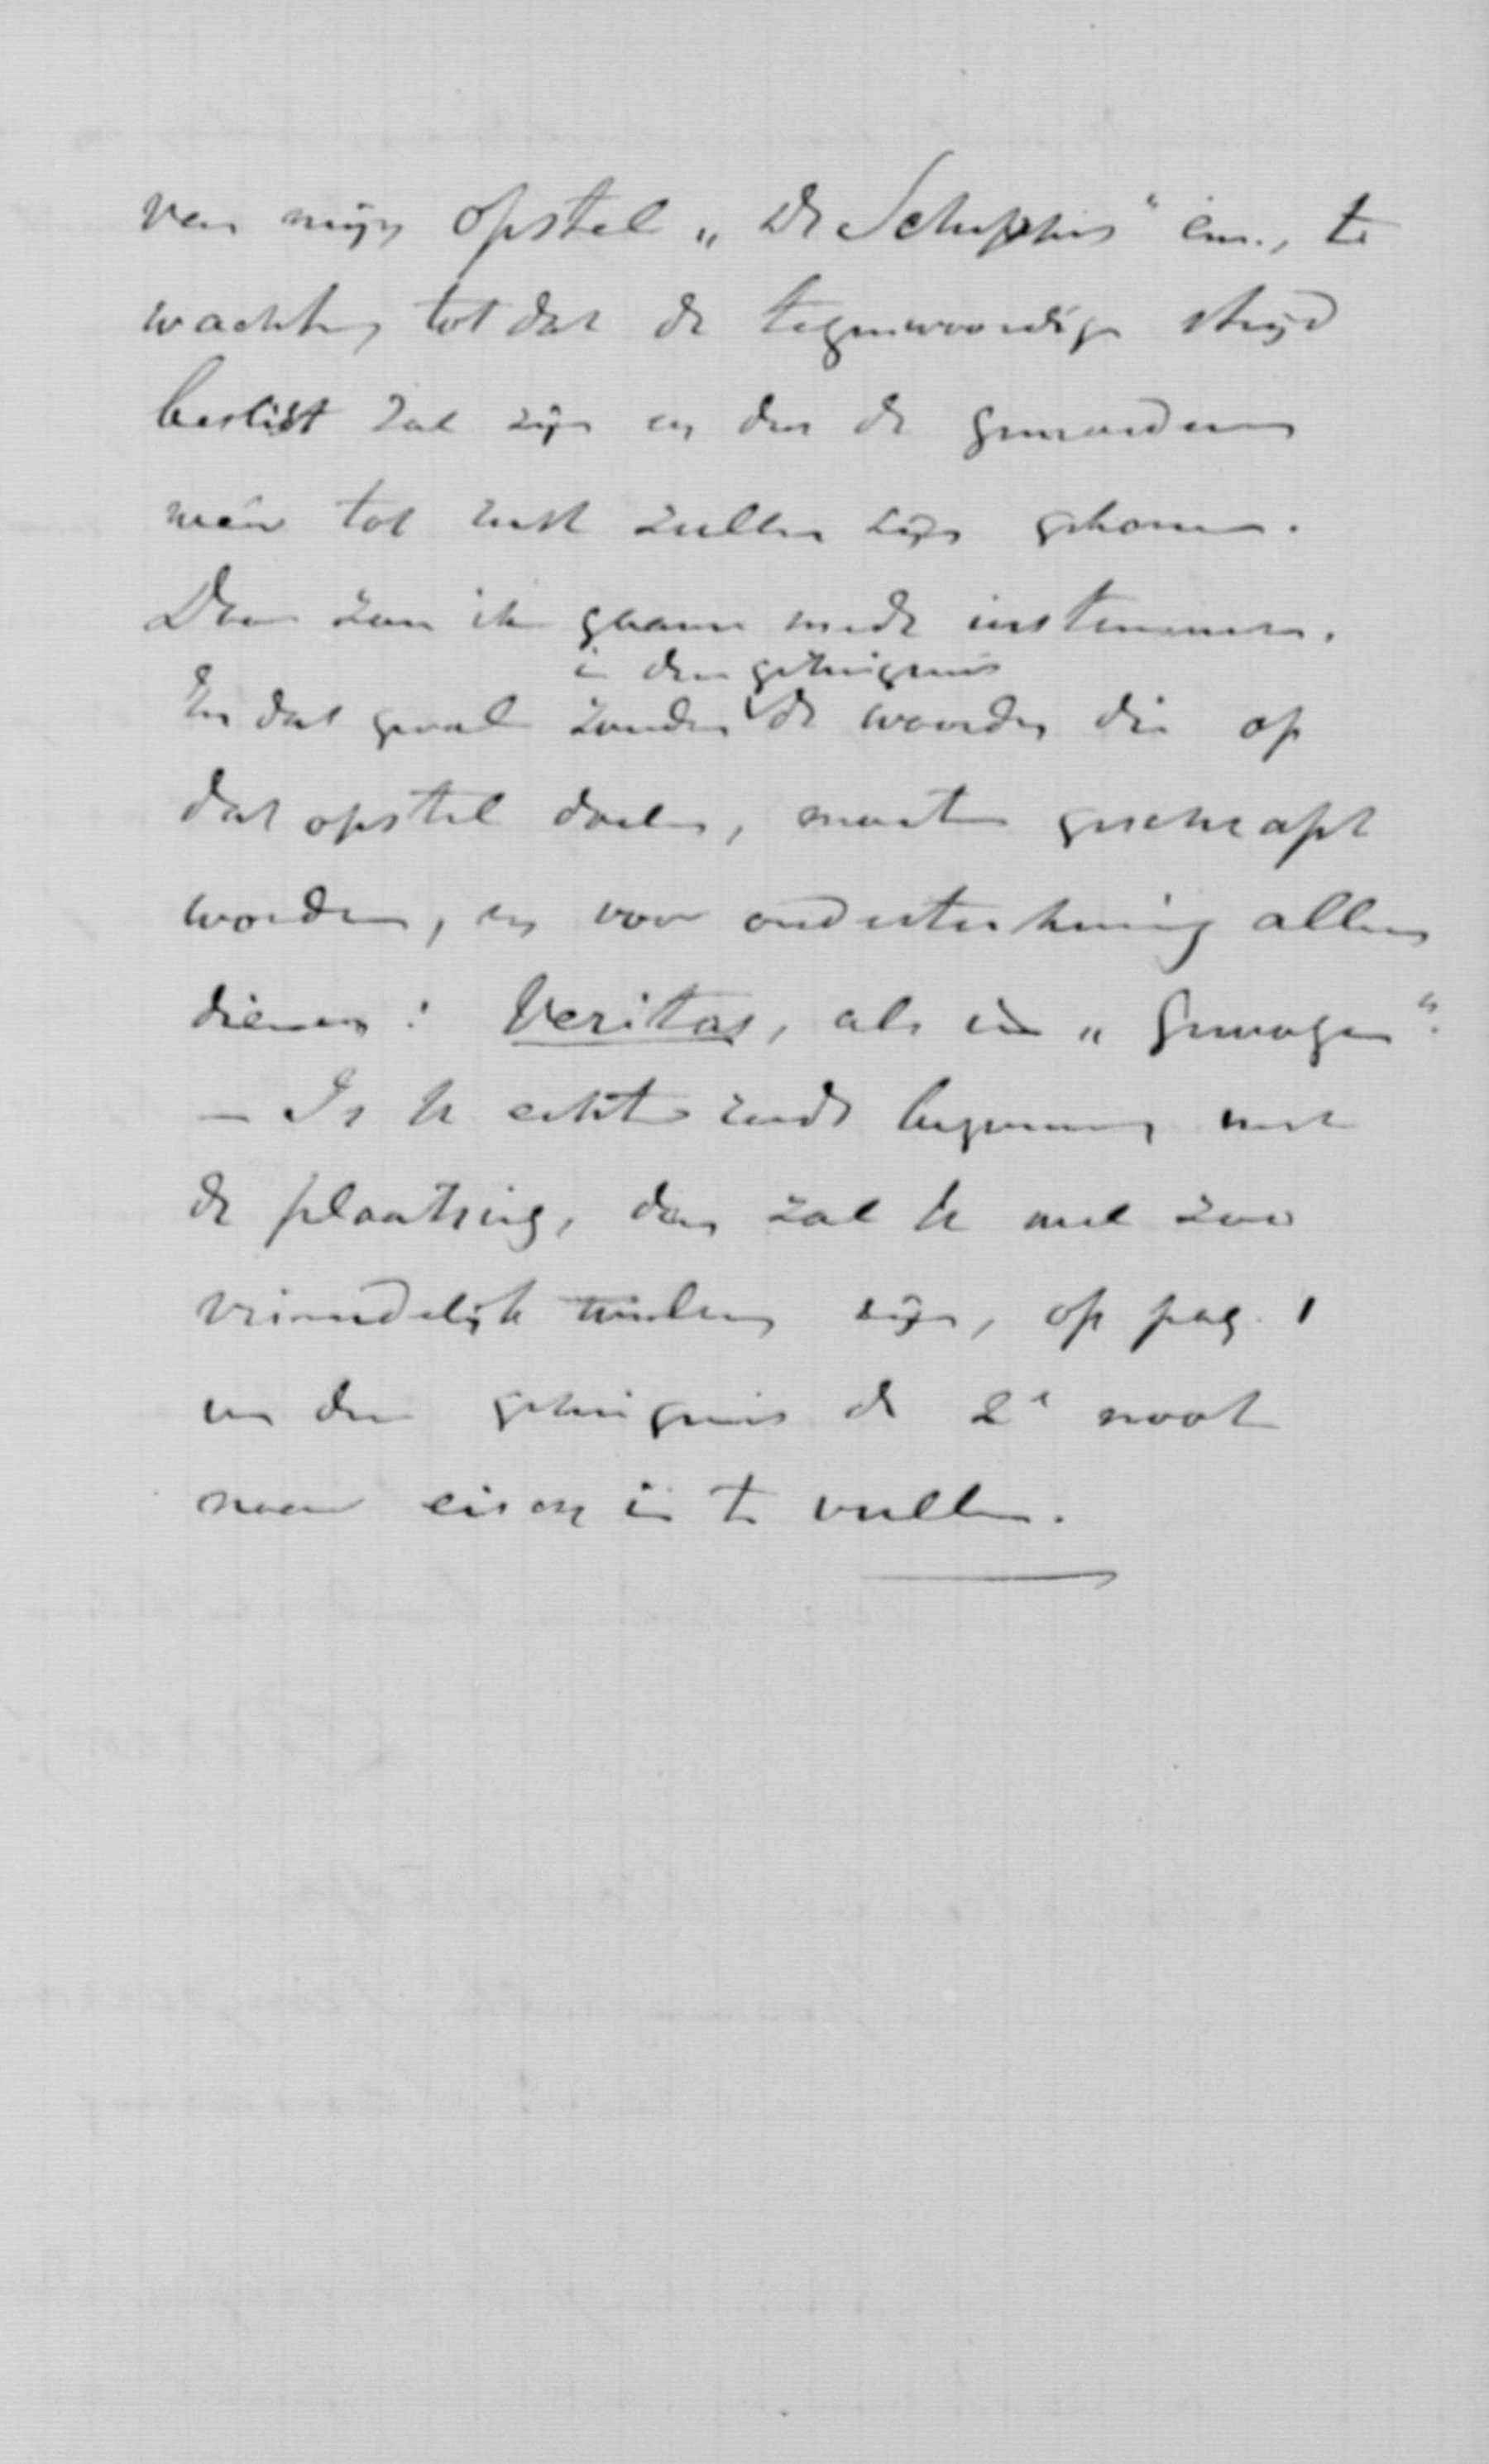 van mijn opstel „De Schuppius" enz., te
wachten totdat de tegenwoordige strijd
beslist zal zijn en dan de gemoederen
weêr tot rust zullen zijn gekomen.
Daar zou ik gaarne mede instemmen.
in den getuigenis
In dat geval zouden de woorden die op
dat opstel doelen, moeten geschrapt
worden, en voor onderteekening alleen
dienen: Veritas, als in „ "
— Is U echter reeds begonnen met
de plaatsing, dan zal U wel zoo
vriendelijk willen zijn, op pag. 1
van den getuigenis de 2e noot
naar eisch in te vullen.